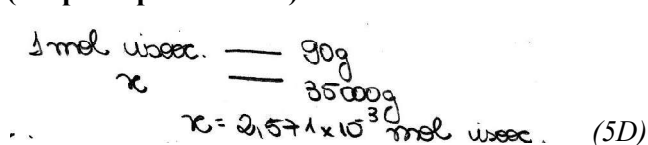 1 mol isooc. — 90g
x — 35000g
x = 2,571x10³ mol isooc. (5D)